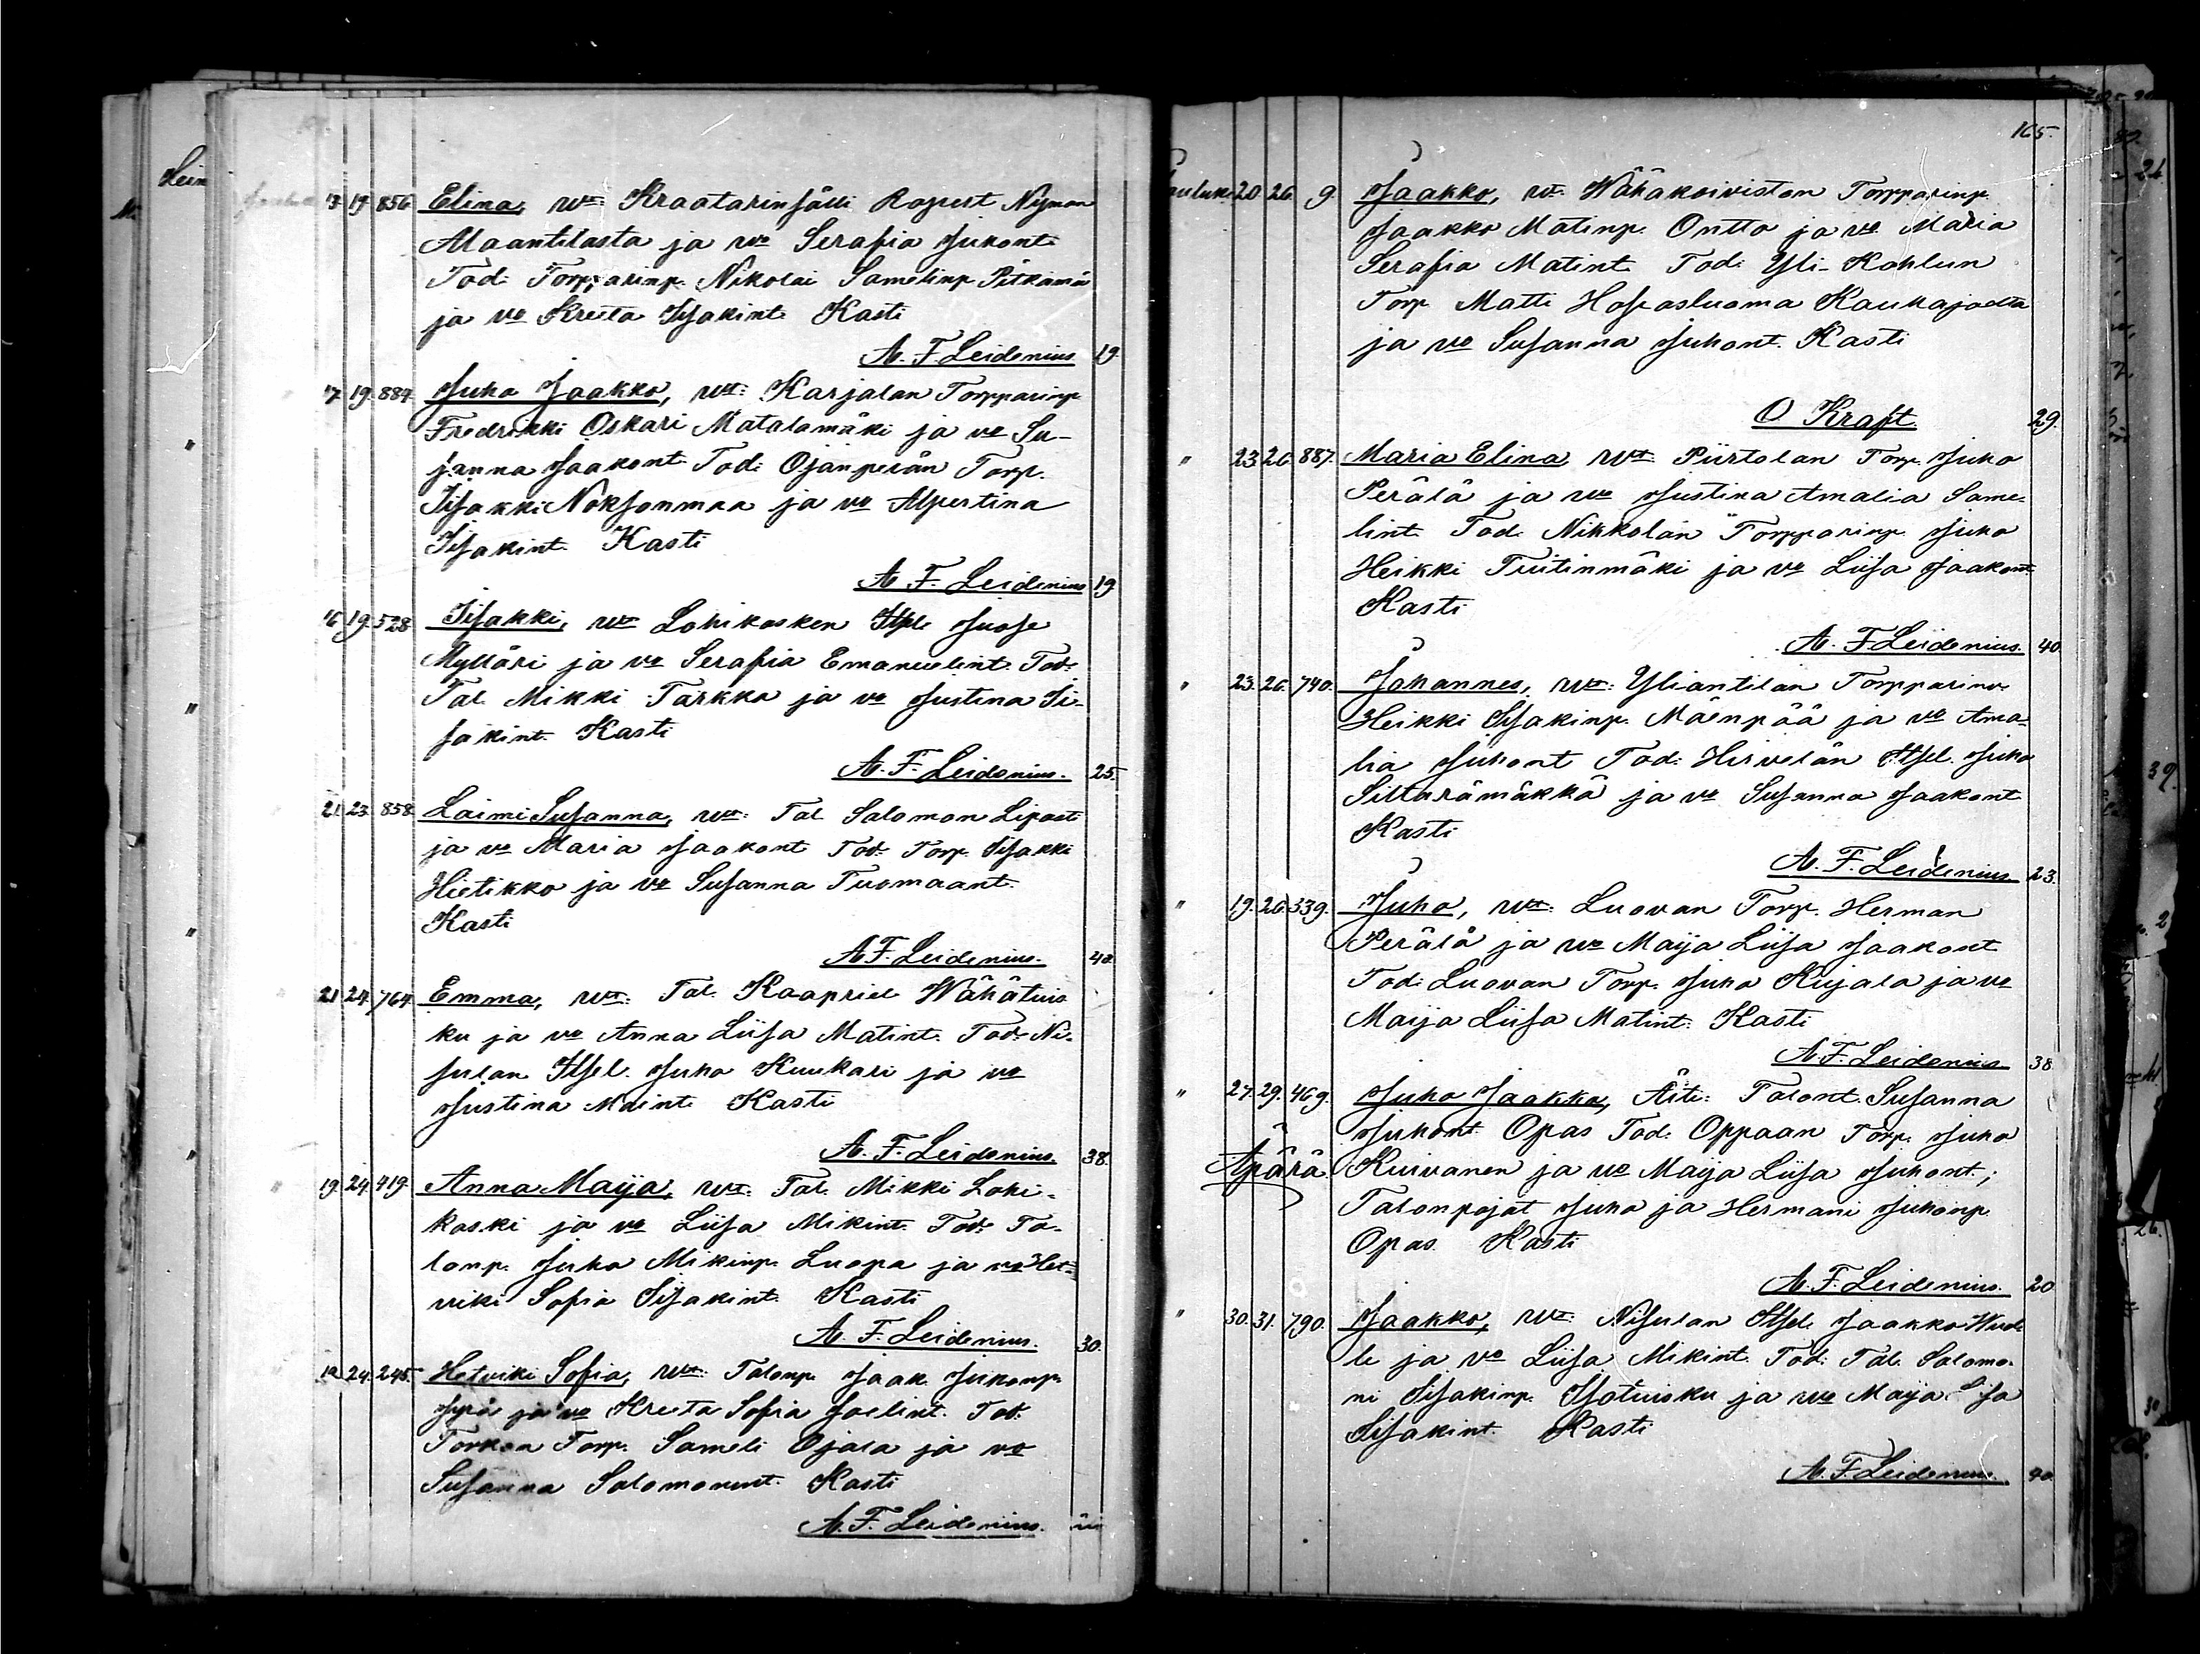 13. 19. 856. Elina, wt: Kraatarinsälli Ropert Nyman
Alaantilasta ja vo Serafia Juhont.
Tod: Torpparinp. Nikolai Samelinp. Pitkämä
ja vo Kreeta Iisakint. Kasti
A. F. Leidenius. 19.
17. 19. 884. Juho Jaakko, wt: Karjalan Torpparinp.
Fredrikki Oskari Matalamäki ja vo Su-
sanna Jaakont. Tod: Ojanperän Torp.
Iisakki Noksonmaa ja vo Alpertina
Iisakint. Kasti
A. F. Leidenius 19.
16. 19. 528. Iisakki, wt: Lohikosken Itsel. Juose
Mylläri ja vo Serafia Emanuelint. Tod:
Tal. Mikki Tarkka ja vo Justina Ii-
sakint. Kasti
A. F. Leidenius. 25.
21. 23. 858. Laimi Susanna, wt: Tal. Salomon Lipasti
ja vo Maria Jaakont. Tod: Torp. Iisakki
Hietikko ja vo Susanna Tuomaant.
Kasti
A. F. Leidenius. 40.
21. 24. 764. Emma, wt: Tal. Kaapriel Wähätuis
ku ja vo Anna Liisa Matint. Tod: Ni-
sulan Itsel. Juho Kuukari ja vo
Justina Kasti
A. F. Leidenius. 38.
19. 24. 419. Anna Maija, wt: Tal. Mikki Lohi-
koski ja vo Liisa Mikint. Tod: Ta-
lonp. Juho Mikinp. Luopa ja vo Het-
viki Sofia Iisakint. Kasti
A. F. Leidenius. 30.
19. 24. 245. Hetviki Sofia, wt: Talonp. Jaak. Juhonp.
Jyrä ja vo Kreeta Sofia Joelint. Tod:
Torkon Torp. Sameli Ojala ja vo
Susanna Salomonint. Kasti
A. F. Leidenius.
165.
Jouluk. 20. 26. 9. Jaakko, wt: Wähäkoiviston Torpparinp.
Jaakko Matinp. Ontto ja vo Maria
Serafia Matint. Tod: Yli-Kohlun
Torp. Matti Hosiasluoma Kauhajoelta
ja vo Susanna Juhont. Kasti
O Kraft. 29.
" 23. 26. 887. Maria Elina, wt: Piirtolan Torp. Juho
Perälä ja vo Justina Amalia Same-
lint. Tod: Nikkolan Torpparinp. Juho
Heikki Tiitinmäki ja vo Liisa Jaakont.
Kasti
A. F. Leidenius. 40.
" 23. 26. 740. Johannes, wt: Yliantilan Torpparinp.
Heikki Iisakinp. Mäenpää ja vo Ama-
lia Juhont. Tod: Hirvelän Itsel. Juho
Siltarämäkkä ja vo Susanna Jaakont.
Kasti
A. F. Leidenius 23.
" 19. 26. 339. Juho, wt: Luovan Torp. Herman
Perälä ja vo Maija Liisa Jaakont.
Tod: Luovan Torp. Juho Kujala ja vo
Maija Liisa Matint. Kasti
A. F. Leidenius 38.
" 27. 29. 469. Juho Jaakko, Äiti: Talont. Susanna
Juhont. Opas Tod: Oppaan Torp. Juho
Äpärä. Kuivanen ja vo Maija Liisa Juhont.;
Talonpojat Juho ja Hermani Juhonp.
Opas. Kasti
A. F. Leidenius. 20
" 30. 31. 790. Jaakko, wt: Nisulan Itsel. Jaakko
le ja vo Liisa Mikint. Tod: Tal. Salomo-
ni Iisakinp. Isotuisku ja vo Maija Liisa
Iisakint. Kasti
A. F. Leidenius. 40.